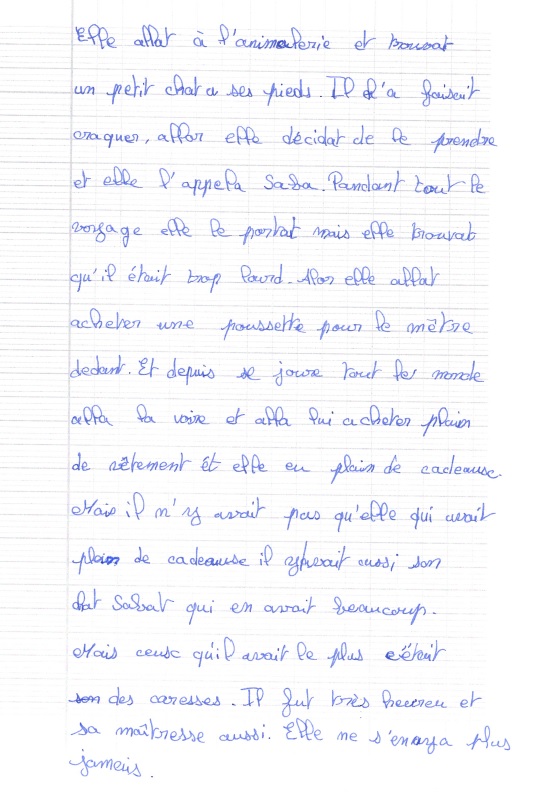 Elle allat à l'animalerie et trouvat
un petit chat a ses pieds. Il l'a faiseit
craquer, allor elle décidat de le prendre
et elle l'appela Saba. Pandant tout le
voyage elle le portat mais elle trouvat
qu'il était trop lourd. Alor elle allat
acheter une poussette pour le mêtre
dedant. Et depuis se joure tout les monde
alla la voire et alla lui acheter plain
de vêtement ét elle eu plain de cadeause.
Mais il n'y avait pas qu'elle qui avait
plain de cadeause il y avait aussi son
chat Sabat qui en avait beaucoup.
Mais ceuse qu'il avait le plus c'était
des caresses. Il fut très heureu et
sa maîtresse aussi. Elle ne s'enuya plus
jameis.